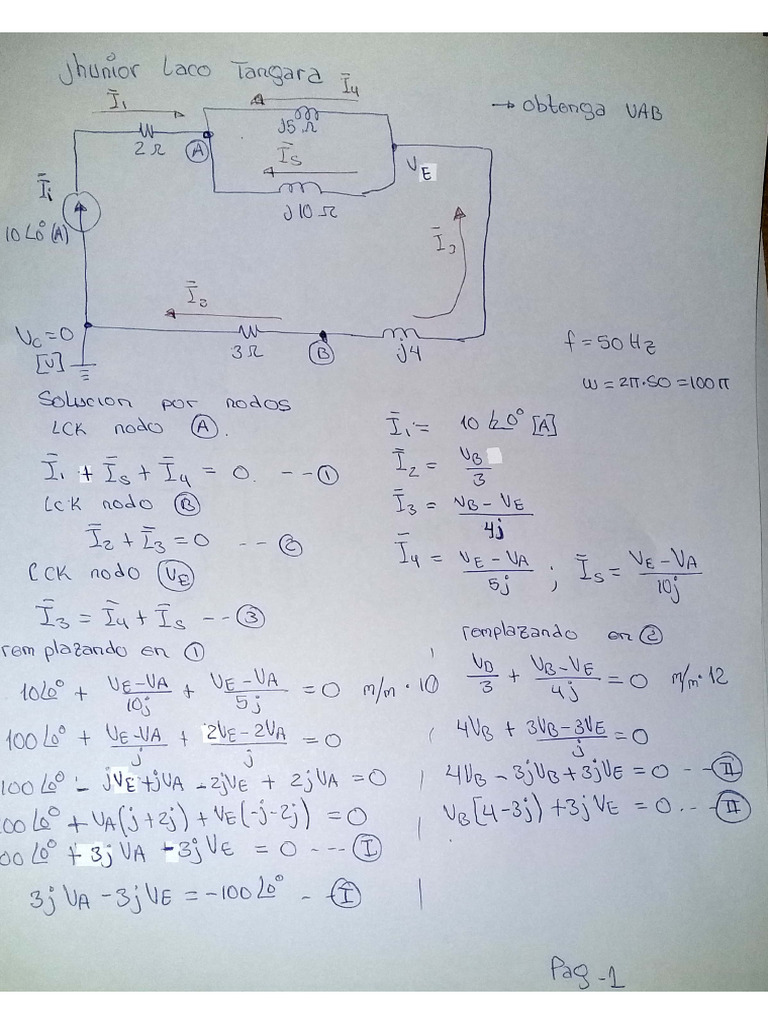 Jhunior Laco Tangara
→ Obtenga VAB
Ī₁
Ī₄
j5 Ω
2Ω
A
Ī₅
VE
j10 Ω
Īi
10∠0° (A)
Ī₃
Ī₂
VC=0
[V]
3Ω
B
j4
f = 50 Hz
ω = 2π·50 = 100π
Solucion por nodos
LCK nodo A.
Ī₁ + Ī₅ + Ī₄ = 0. --- ①
LCK nodo B
Ī₂ + Ī₃ = 0 --- ②
LCK nodo VE
Ī₃ = Ī₄ + Ī₅ --- ③
Ī₁ = 10∠0° [A]
Ī₂ = VB/3
Ī₃ = (VB - VE)/4j
Ī₄ = (VE - VA)/5j ; Ī₅ = (VE - VA)/10j
remplazando en ①
10∠0° + (VE-VA)/10j + (VE-VA)/5j = 0 m/m·10
100∠0° + (VE-VA)/j + (2VE-2VA)/j = 0
100∠0° - jVE + jVA - 2jVE + 2jVA = 0
00∠0° + VA(j+2j) + VE(-j-2j) = 0
00∠0° + 3jVA - 3jVE = 0 --- Ⅰ
3jVA - 3jVE = -100∠0° -- Ⅰ
remplazando en ②
VB/3 + (VB-VE)/4j = 0 m/m·12
4VB + (3VB-3VE)/j = 0
4VB - 3jVB + 3jVE = 0 -- Ⅱ
VB[4-3j) + 3jVE = 0. -- Ⅱ
Pag -1